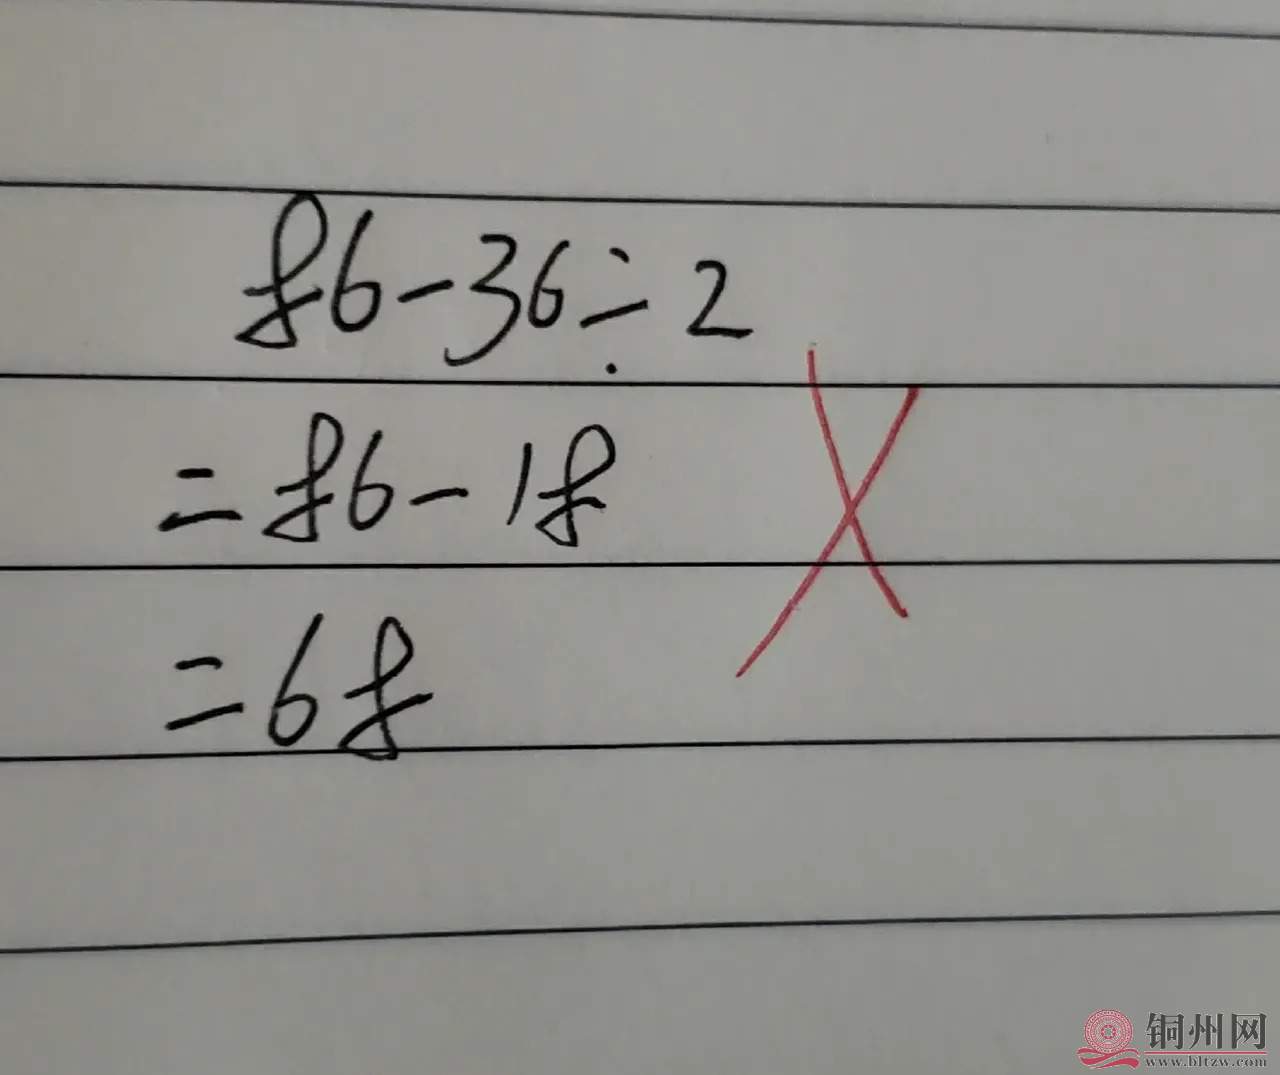 86-36÷2
=86-18
=68
铜州网
www.bltzw.com